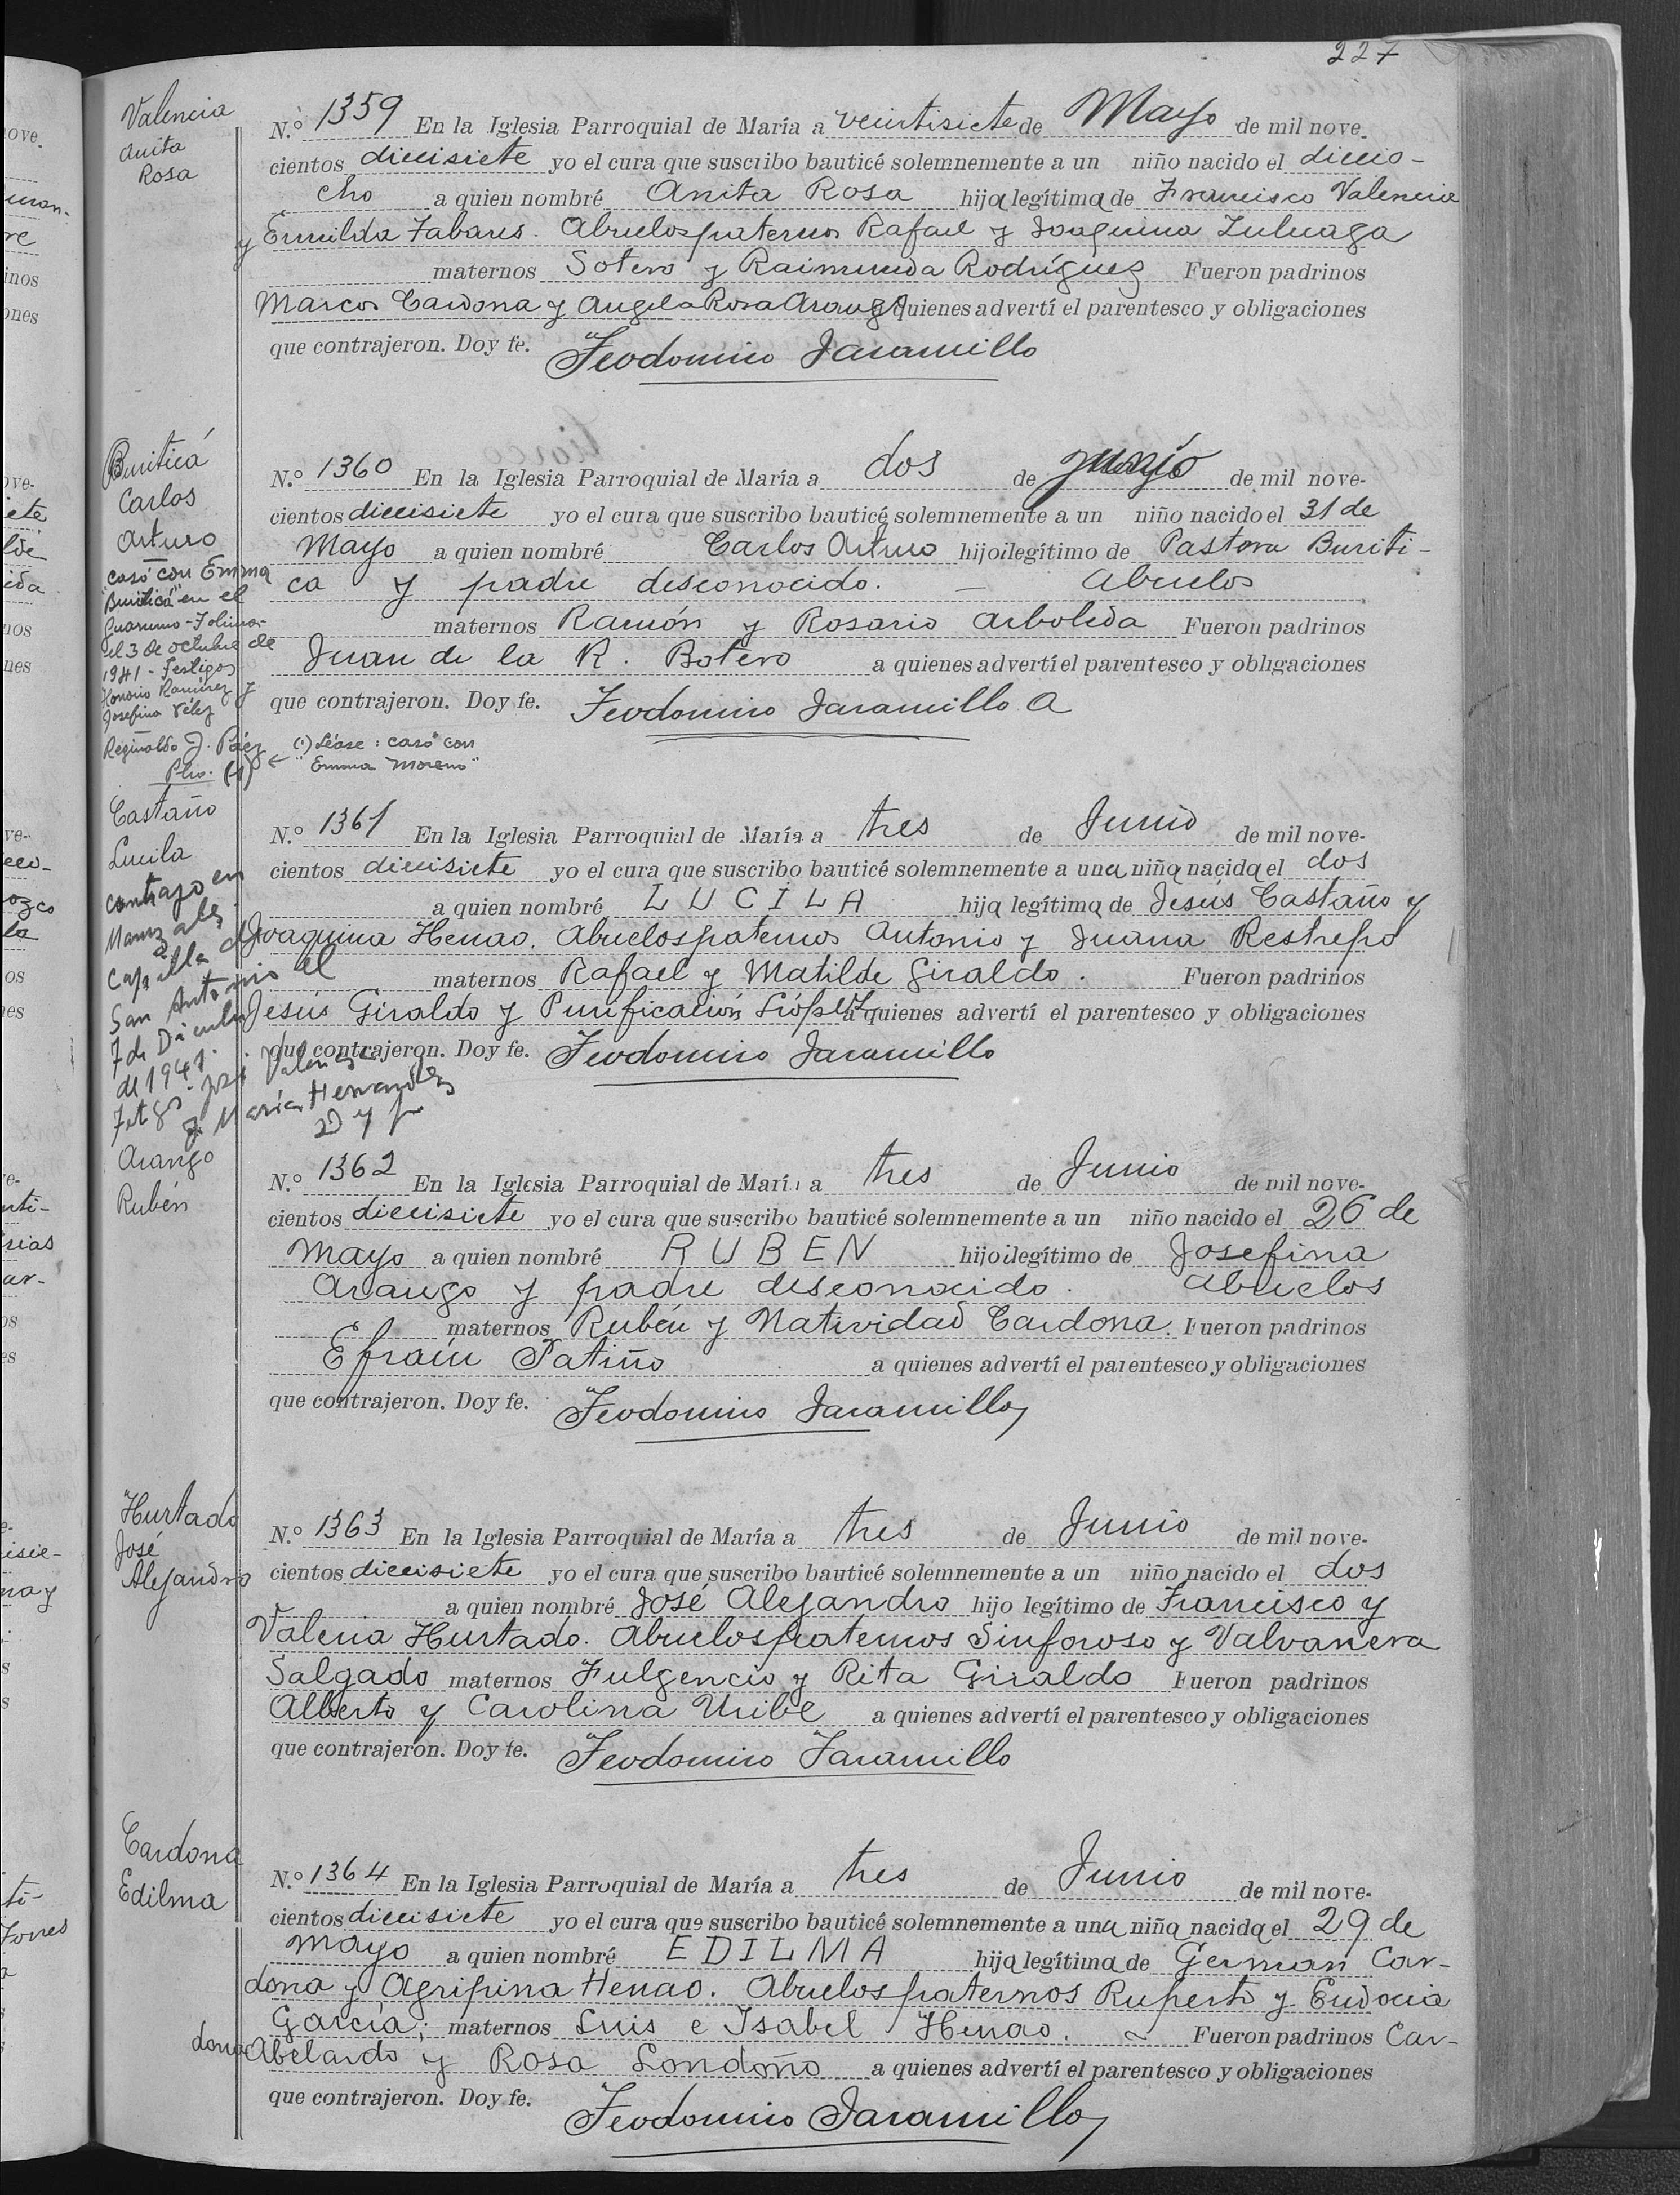 227
Valencia
Anita
Rosa
N.º 1359 En la Iglesia Parroquial de María a veintisiete de Mayo de mil nove-
cientos diecisiete yo el cura que suscribo bauticé solemnemente a un niño nacido el diecio-
cho a quien nombré Anita Rosa hija legítima de Francisco Valencia
y Ermilda Tabares. Abuelos paternos Rafael y Joaquina Zuluaga
maternos Sotero y Raimunda Rodríguez Fueron padrinos
Marcos Cardona y Angela Rosa Arango a quienes advertí el parentesco y obligaciones
que contrajeron. Doy fe. Teodomiro Jaramillo
Buriticá
Carlos
Arturo
casó con Emma
"Buriticá" en el
Guarumo-Tolima-
el 3 de octubre de
1941 - Testigos
Honorio Ramírez y
Josefina Vélez
Reginaldo J. Páez
Pbro. (1)
(1) Léase: casó con
"Emma Moreno"
N.º 1360 En la Iglesia Parroquial de María a dos de junio de mil nove-
cientos diecisiete yo el cura que suscribo bauticé solemnemente a un niño nacido el 31 de
Mayo a quien nombré Carlos Arturo hijo ilegítimo de Pastora Buriti-
ca y padre desconocido. — Abuelos
maternos Ramón y Rosario Arboleda Fueron padrinos
Juan de la R. Botero a quienes advertí el parentesco y obligaciones
que contrajeron. Doy fe. Teodomiro Jaramillo A
Castaño
Lucila
contrajo en
Manizales
Capilla de
San Antonio el
7 de Diciembre
de 1941.
Tetgs. José Valencia
y María Hernández
D y f
N.º 1361 En la Iglesia Parroquial de María a tres de Junio de mil nove-
cientos diecisiete yo el cura que suscribo bauticé solemnemente a una niña nacida el dos
a quien nombré LUCILA hija legítima de Jesús Castaño y
Joaquina Henao. Abuelos paternos Antonio y Juana Restrepo
maternos Rafael y Matilde Giraldo. Fueron padrinos
Jesús Giraldo y Purificación López a quienes advertí el parentesco y obligaciones
que contrajeron. Doy fe. Teodomiro Jaramillo
Arango
Rubén
N.º 1362 En la Iglesia Parroquial de María a tres de Junio de mil nove-
cientos diecisiete yo el cura que suscribo bauticé solemnemente a un niño nacido el 26 de
Mayo a quien nombré RUBEN hijo ilegítimo de Josefina
Arango y padre desconocido. Abuelos
maternos Rubén y Natividad Cardona. Fueron padrinos
Efraín Patiño a quienes advertí el parentesco y obligaciones
que contrajeron. Doy fe. Teodomiro Jaramillo
Hurtado
José
Alejandro
N.º 1363 En la Iglesia Parroquial de María a tres de Junio de mil nove-
cientos diecisiete yo el cura que suscribo bauticé solemnemente a un niño nacido el dos
a quien nombré José Alejandro hijo legítimo de Francisco y
Valeria Hurtado. Abuelos paternos Sinforoso y Valvanera
Salgado maternos Fulgencio y Rita Giraldo Fueron padrinos
Alberto y Carolina Uribe a quienes advertí el parentesco y obligaciones
que contrajeron. Doy fe. Teodomiro Jaramillo
Cardona
Edilma
N.º 1364 En la Iglesia Parroquial de María a tres de Junio de mil nove-
cientos diecisiete yo el cura que suscribo bauticé solemnemente a una niña nacida el 29 de
Mayo a quien nombré EDILMA hija legítima de German Car-
dona y Agripina Henao. Abuelos paternos Ruperto y Eudocia
García; maternos Luis e Isabel Henao. Fueron padrinos Car-
dona Abelardo y Rosa Londoño a quienes advertí el parentesco y obligaciones
que contrajeron. Doy fe. Teodomiro Jaramillo